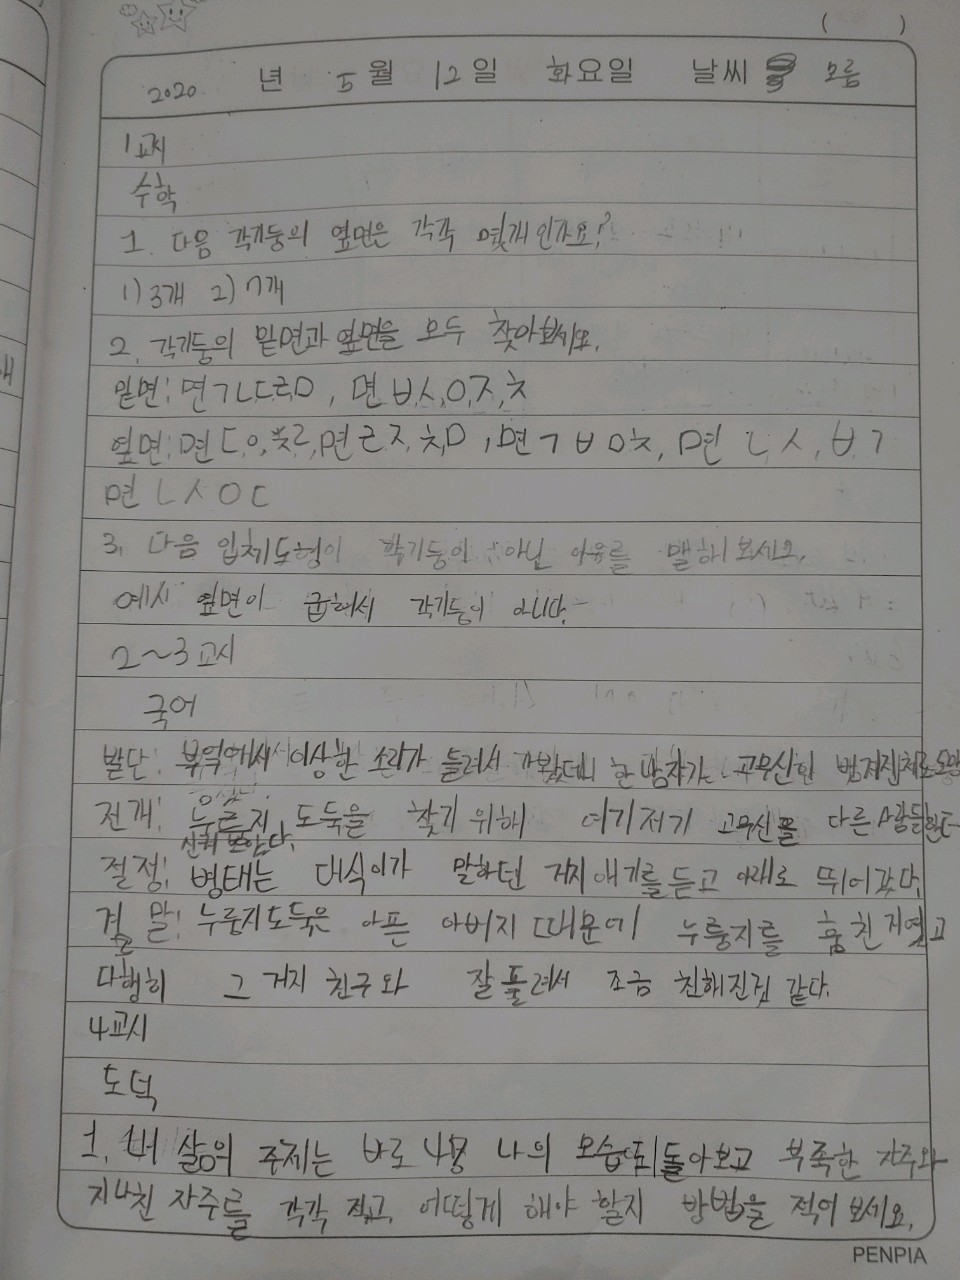 ( )
2020 년 5월 12일 화요일 날씨 모름
1교시
수학
1. 다음 각기둥의 옆면은 각각 몇개인가요?
1) 3개 2) 7개
2. 각기둥의 밑면과 옆면을 모두 찾아보세요.
밑면: 면ㄱㄴㄷㄹㅁ, 면ㅂ,ㅅ,ㅇ,ㅈ,ㅊ
옆면: 면ㄷ,ㅇ,ㅈㄹ, 면ㄹㅈ,ㅊ,ㅁ, 면ㄱㅂㅁㅊ, 면ㄴ,ㅅ,ㅂㄱ
면ㄴㅅㅇㄷ
3. 다음 입체도형이 각기둥이 아닌 이유를 말해보세요.
예시 옆면이 굽혀서 각기둥이 아니다.
2~3교시
국어
발단: 부엌에서 이상한 소리가 들려서 가봤더니 한 남자가 고무신한
전개: 누룽지 도둑을 찾기 위해 여기저기 고무신을 다른 사람들한테
절정: 병태는 대식이가 말하던 거지얘기를 듣고 아래로 뛰어갔다.
결말: 누룽지도둑은 아픈 아버지 때문에 누룽지를 훔친거였고
다행히 그 거지 친구와 잘 풀려서 조금 친해진것 같다.
4교시
도덕
1. 내 삶의 주제는 바로 나 나의 모습 되돌아보고 부족한 자주와
지나친 자주를 각각 적고, 어떻게 해야 할지 방법을 적어 보세요.
PENPIA